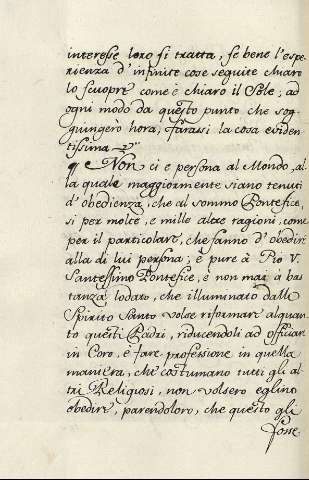 interesse loro si tratta, se bene l'espe-
rienza d'infinite cose seguite chiaro
lo scuopre come è chiaro il Sole; ad
ogni modo da questo punto che sog-
giungerò hora, farassi la cosa eviden-
tissima.
Non ci è persona al Mondo, al-
la quale maggiormente siano tenuti
d'obedienza, che al sommo Pontefice,
si per molte, e mille altre ragioni, come
per il particolare, che fanno d'obedire
alla di lui persona; e pure à Pio V.
Santissimo Pontefice, e non mai à bas-
tanza lodato, che illuminato dallo
Spirito Santo volse riformare alquan-
to questi Padri, riducendoli ad officiare
in Coro, e fare professione in quella
maniera, che costumano tutti gli al-
tri Religiosi, non volsero eglino
obedire, parendoloro, che questo gli
fosse